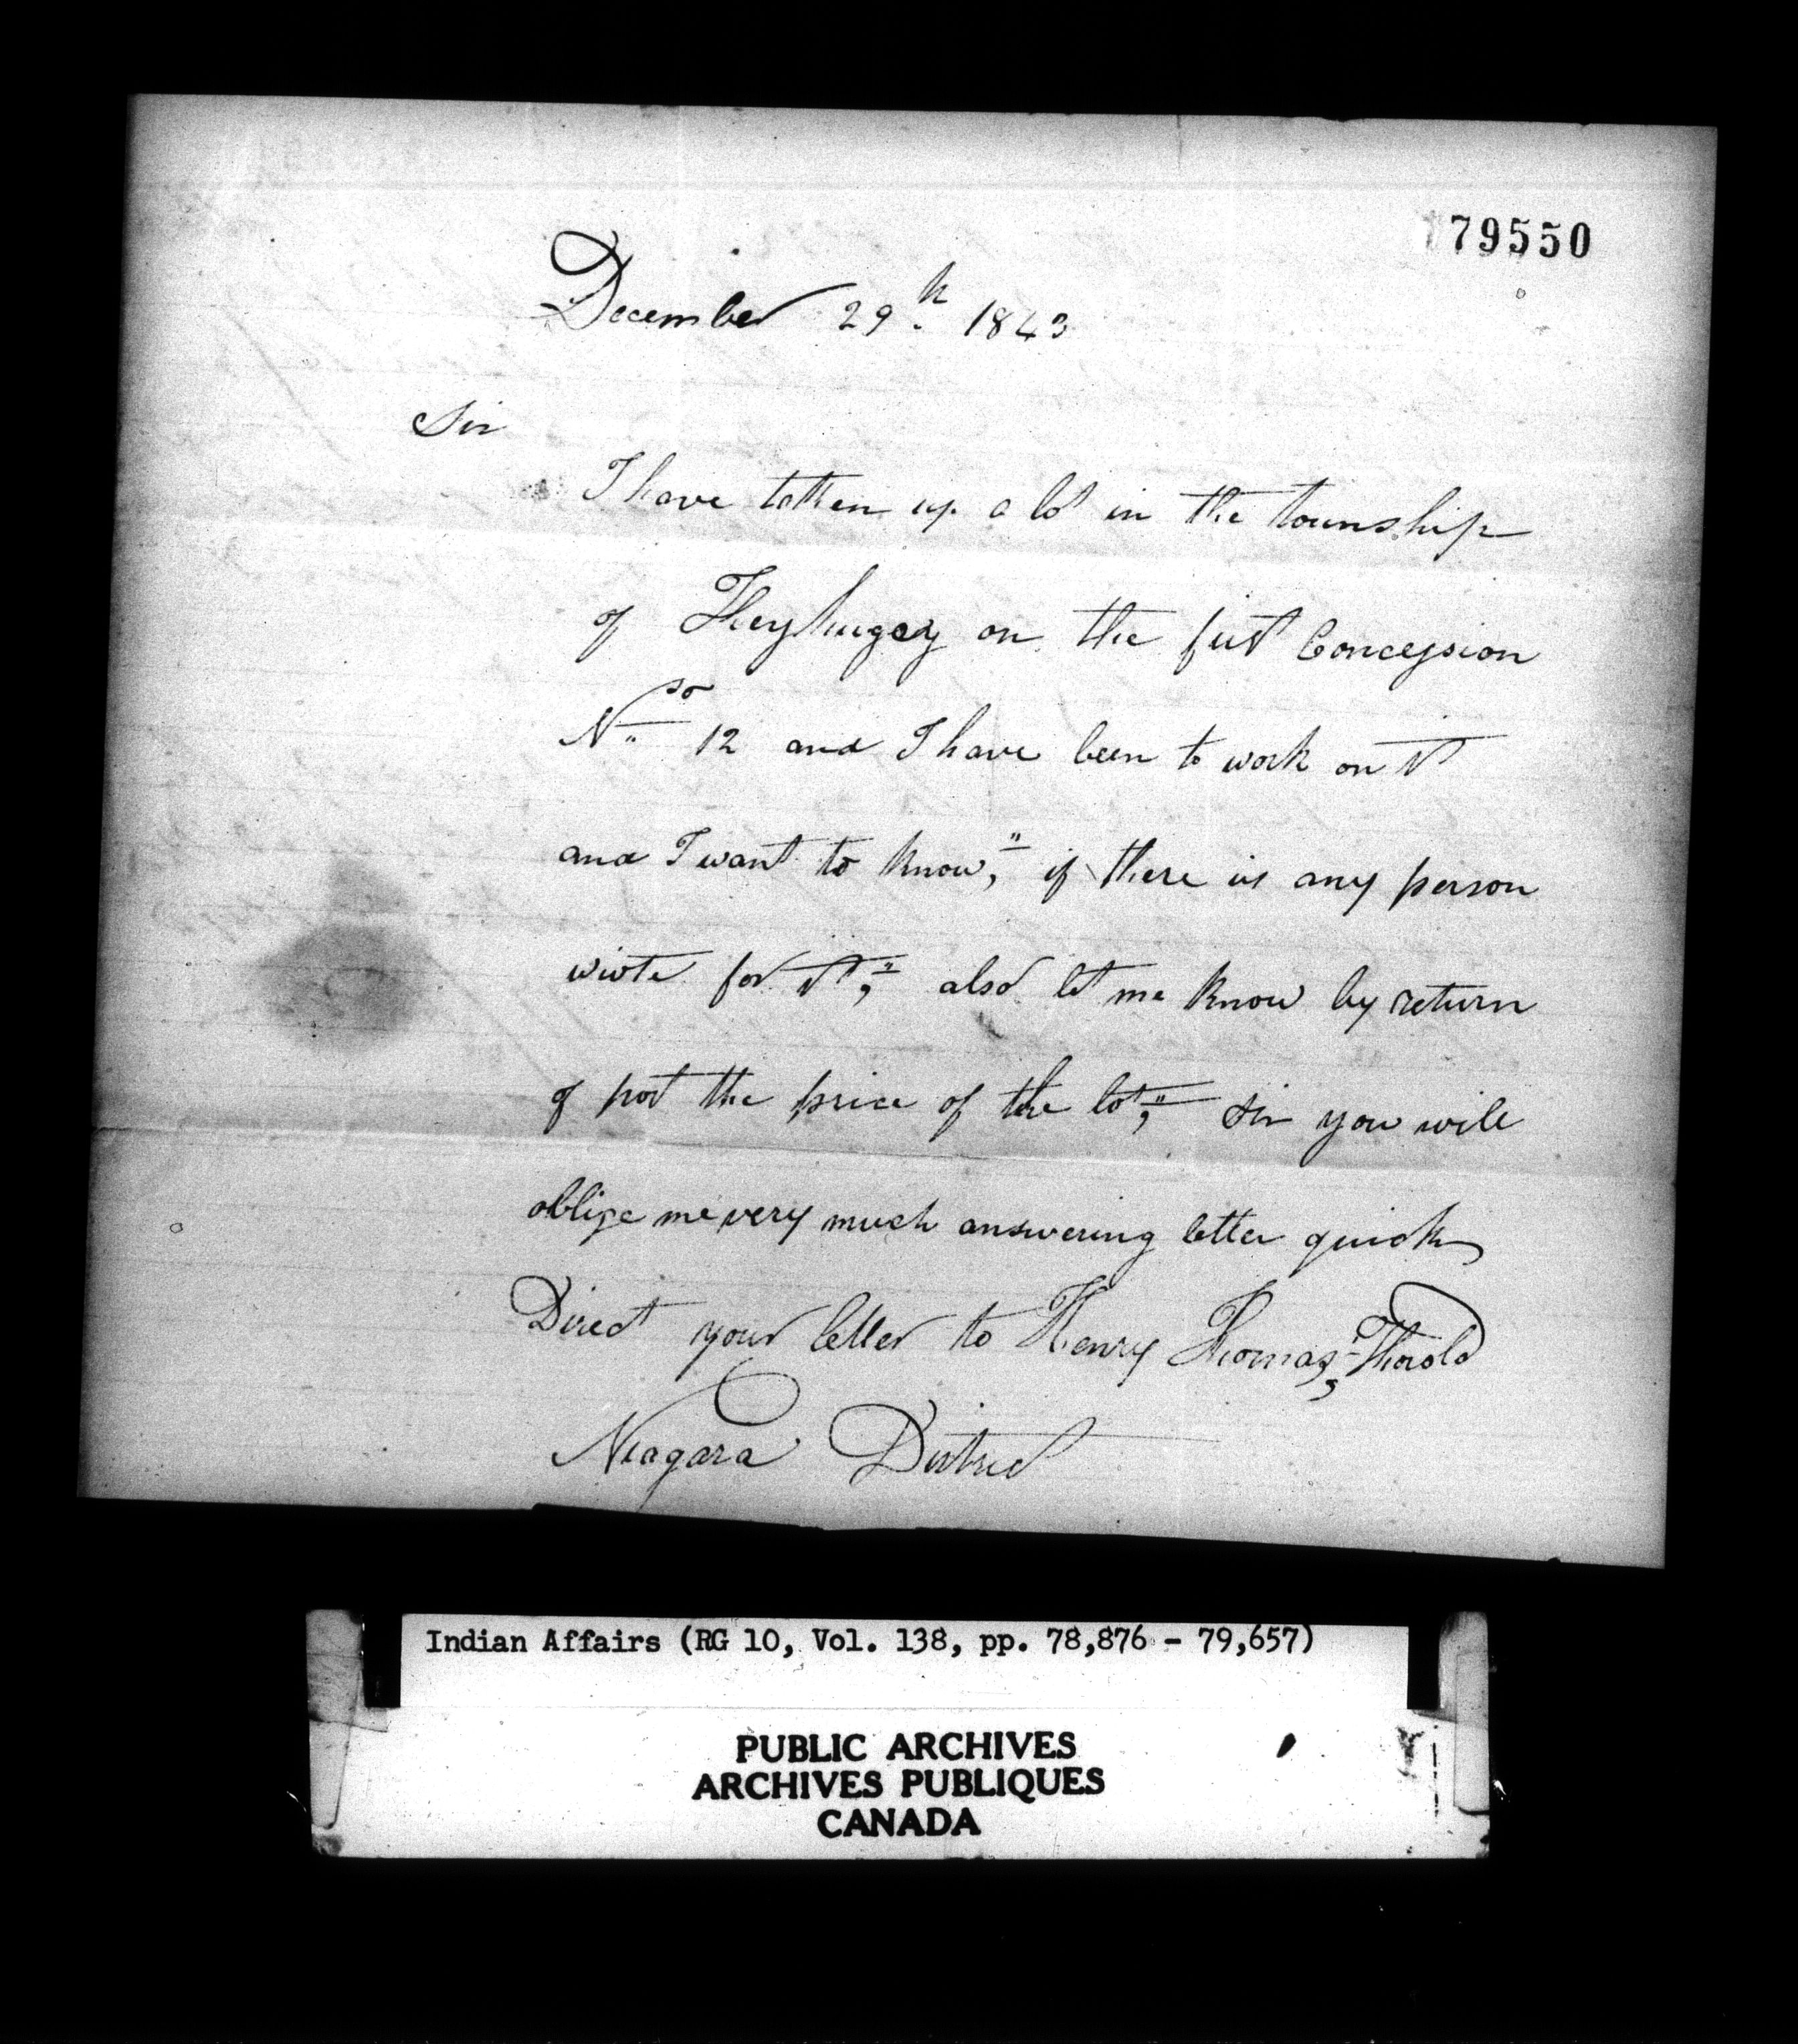 79550
December 29th 1843
Sir
I have takken up a lot in the township
of on the fist Concession
No 12 and I have been to work on it
and I want to know," if there is any person
wrote for it," also let me know by return
of post the price of the lot," Sir you will
oblige me very much answering letter quick
Direct your letter to Henry Thomas, Thorold
Niagara District
Indian Affairs (RG 10, Vol. 138, pp. 78,876 - 79,657)
PUBLIC ARCHIVES
ARCHIVES PUBLIQUES
CANADA